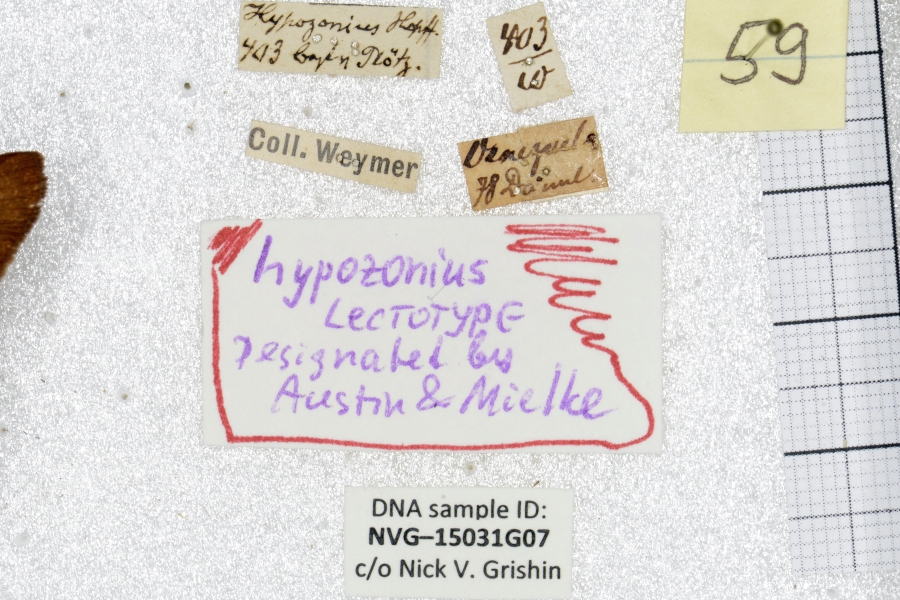 Hypozonius Hpff.
403 bei Plötz.
403
W
59
Coll. Weymer
Venezuela
78
hypozonius
LECTOTYPE
Designated by
Austin & Mielke
DNA sample ID:
NVG–15031G07
c/o Nick V. Grishin